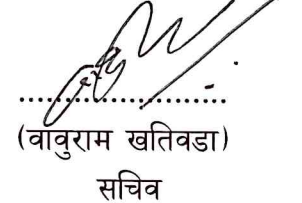 ....................................
(वावुराम खतिवडा)
सचिव